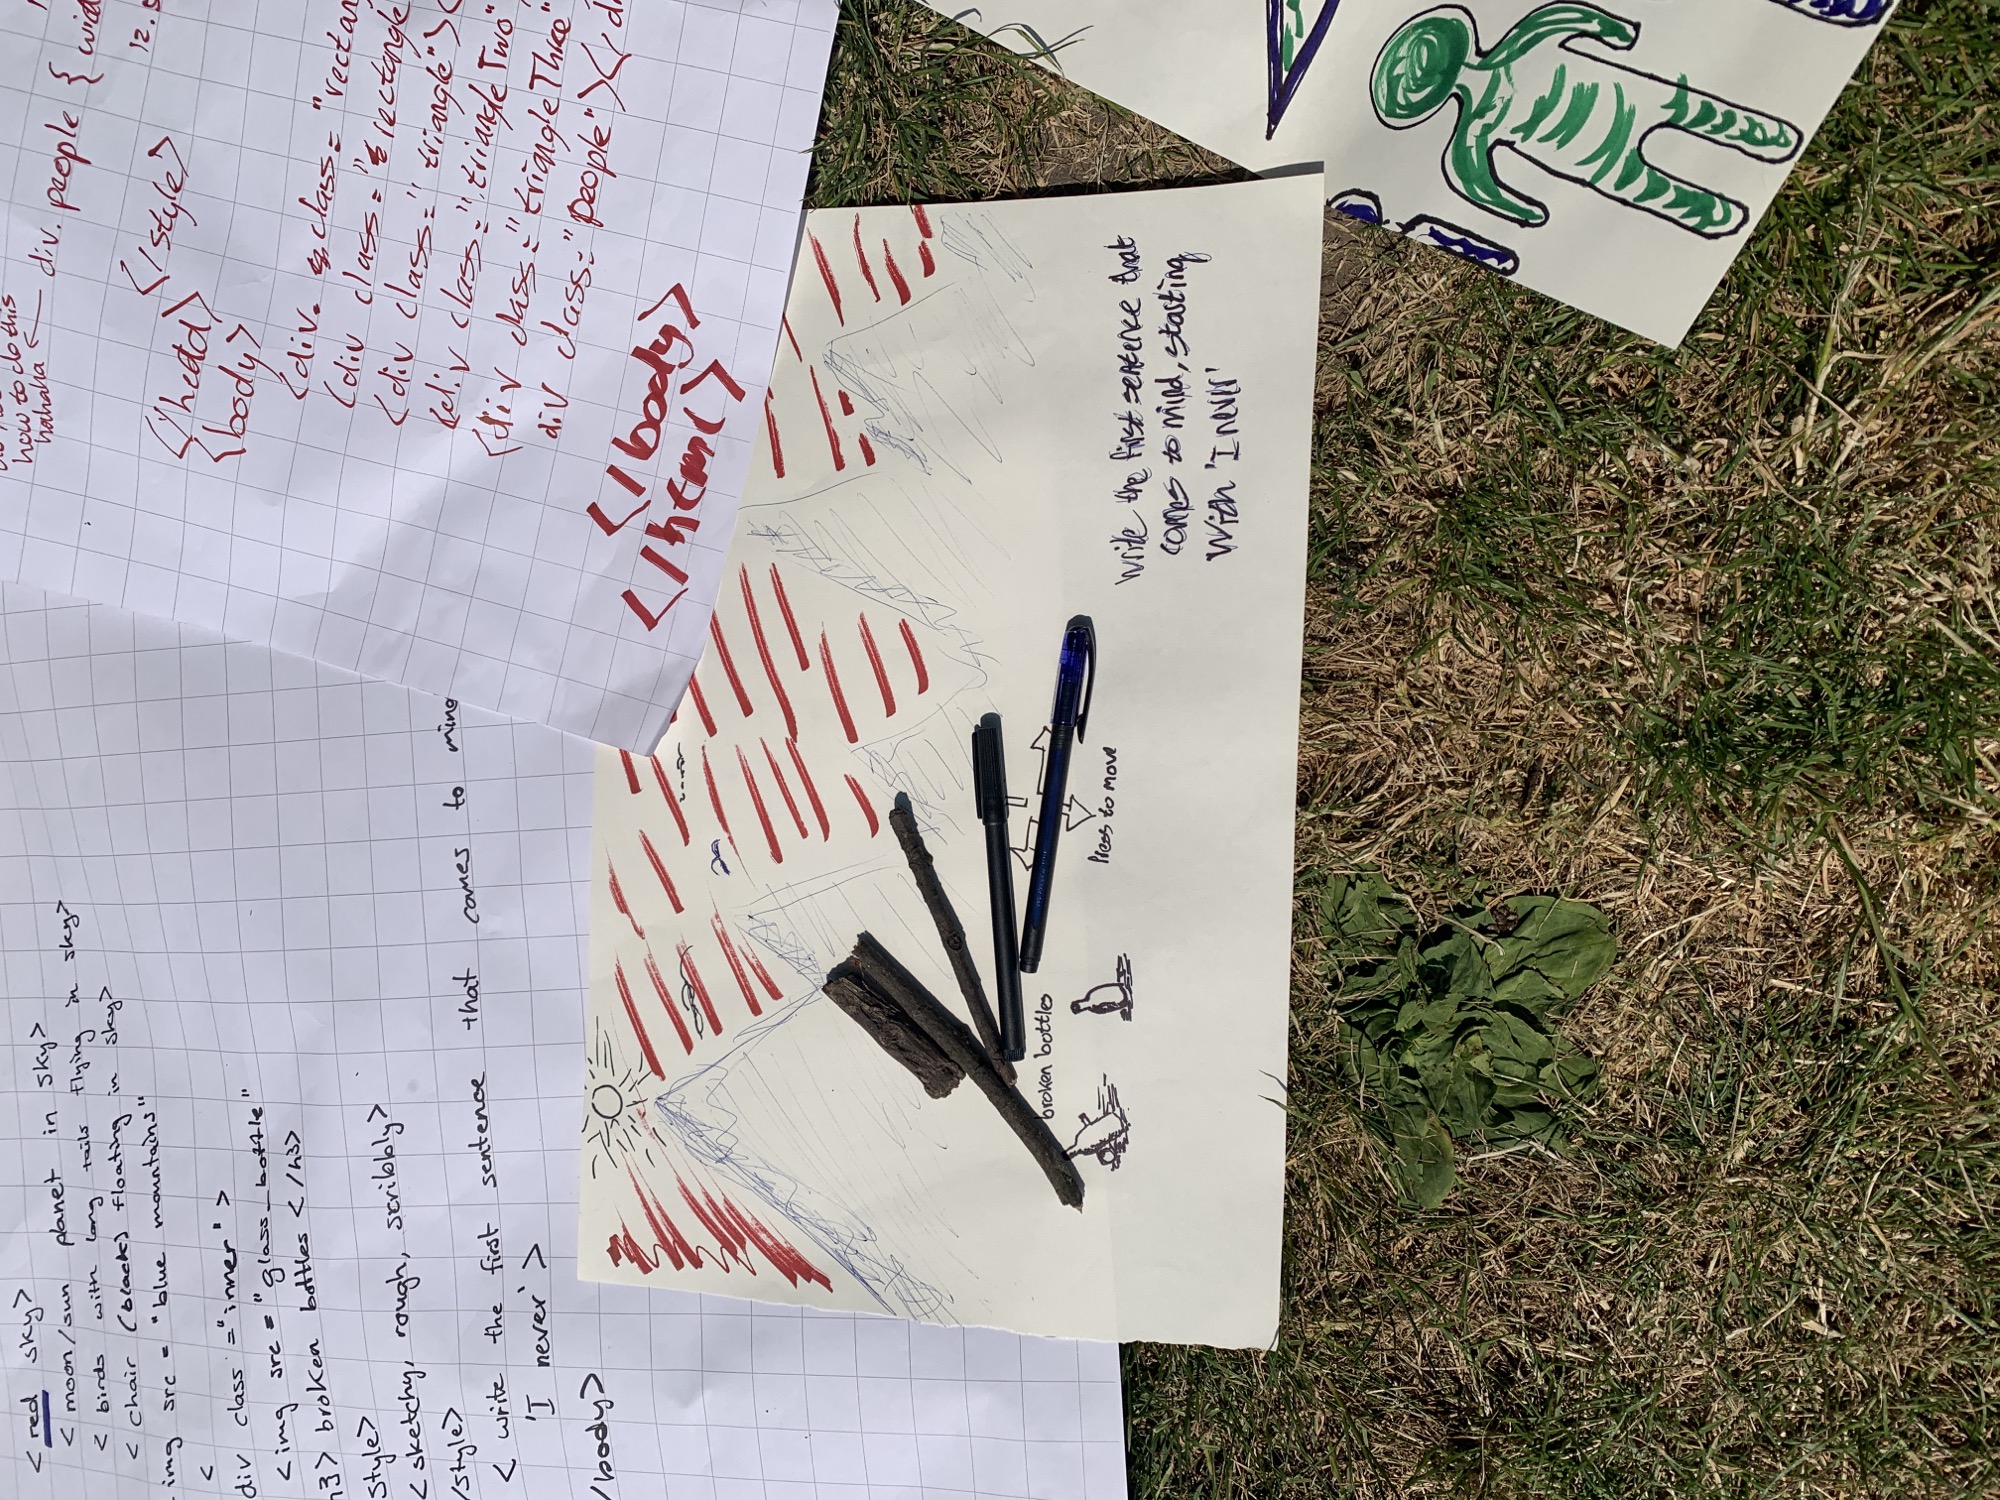 <red sky>
<moon/sun planet in sky>
< birds with long tails flying in sky>
< chair (black) floating in sky>
img src = "blue mountains"
<
div class ="inner" >
<img src = "glass_bottle"
h3> broken bottles </h3>
style>
< sketchy, rough, scribbly>
/style>
< write the first sentence that comes to mind
'I never' >
/body>
how to do this
hahaha ← div. people {
12.
</style>
</head>
<body>
<div. class= "rectan
<div class= "rectangle
<div class= "triangle"><
<div class= "triangleTwo"
<div class= "triangleThree"
div class= "people"></di
</body>
</html>
broken bottles
Press to move
Write the first sentence that
comes to mind, starting
With 'I never'